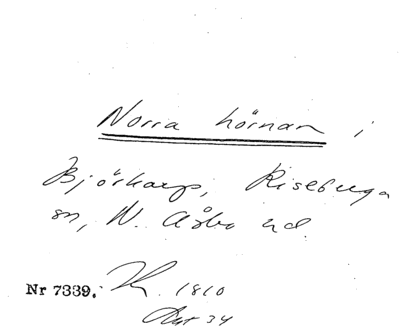 Norra hörnan i
Björkarp, Riseberga
sn, N. Åsbo hd.
Nr 7339. K. 1810
34